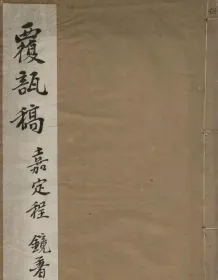 覆瓿稿 嘉定程鏡署